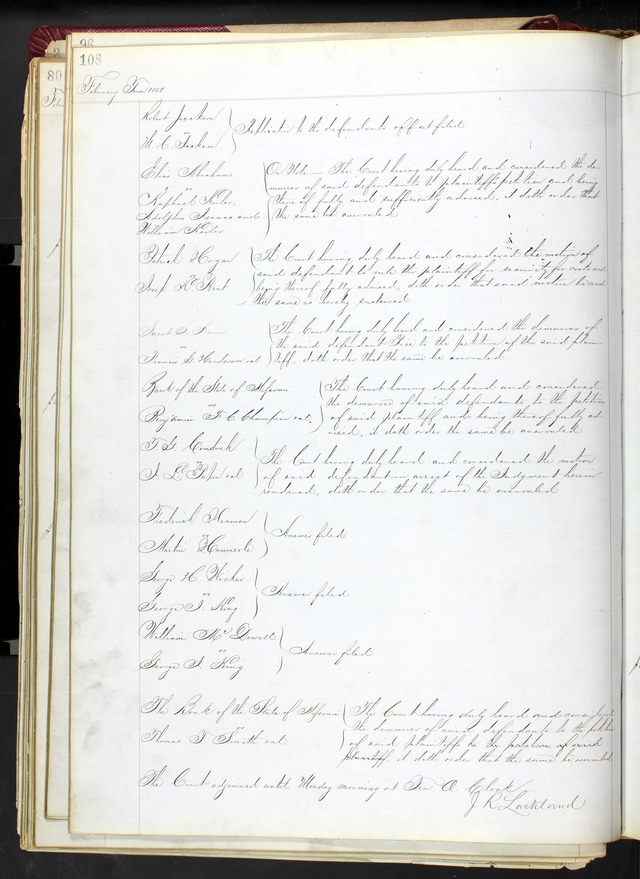 96
108
80
February Term 1858
Robert
vs
M. C. Jackson
Replication to the defendants offset filed
Elias Abrahams
vs
Raphael Keiler,
Adolphus Isaacs and
William Keiler
The Court having duly heard and considered the de-
murrer of said defendants to plaintiffs petition and being
thereof fully and sufficiently advised, it doth order that
the same be overruled
Patrick Hogan
vs
Kent
The Court having duly heard and considered the motion of
said defendant to rule the plaintiff for security for costs and
being thereof fully advised, doth order that said motion be and
the same is hereby sustained
Jacob S.
vs
Francis Henderson et al
The Court having duly heard and considered the demurrer of
the said defendant to the petition of the said plain-
tiff, doth order that the same be overruled
Bank of the State of Missouri
vs
Benjamin F. C. Champion et al,
The Court having duly heard and considered
the demurrer of said defendants, to the petition
of said plaintiff and being thereof fully ad-
vised, it doth order the same be overruled
T. G. Comstock
vs
J. L. et al
The Court having duly heard and considered the motion
of said defendant in arrest of the Judgment herein
rendered, doth order that the same be overruled
Frederick
vs
Martin Hammerle
Answer filed
George H. C.
vs
George I. King
Answer filed
William McDowell
vs
George I. King
Answer filed
The Bank of the State of Missouri
vs
Thomas T. Smith et al
The Court having duly heard and considered
the demurrer of said defendants to the petition
of said plaintiffs to the petition of said
plaintiff, it doth order that the same be overruled
The Court adjourned until Monday morning at Ten O. Clock
J R Lackland